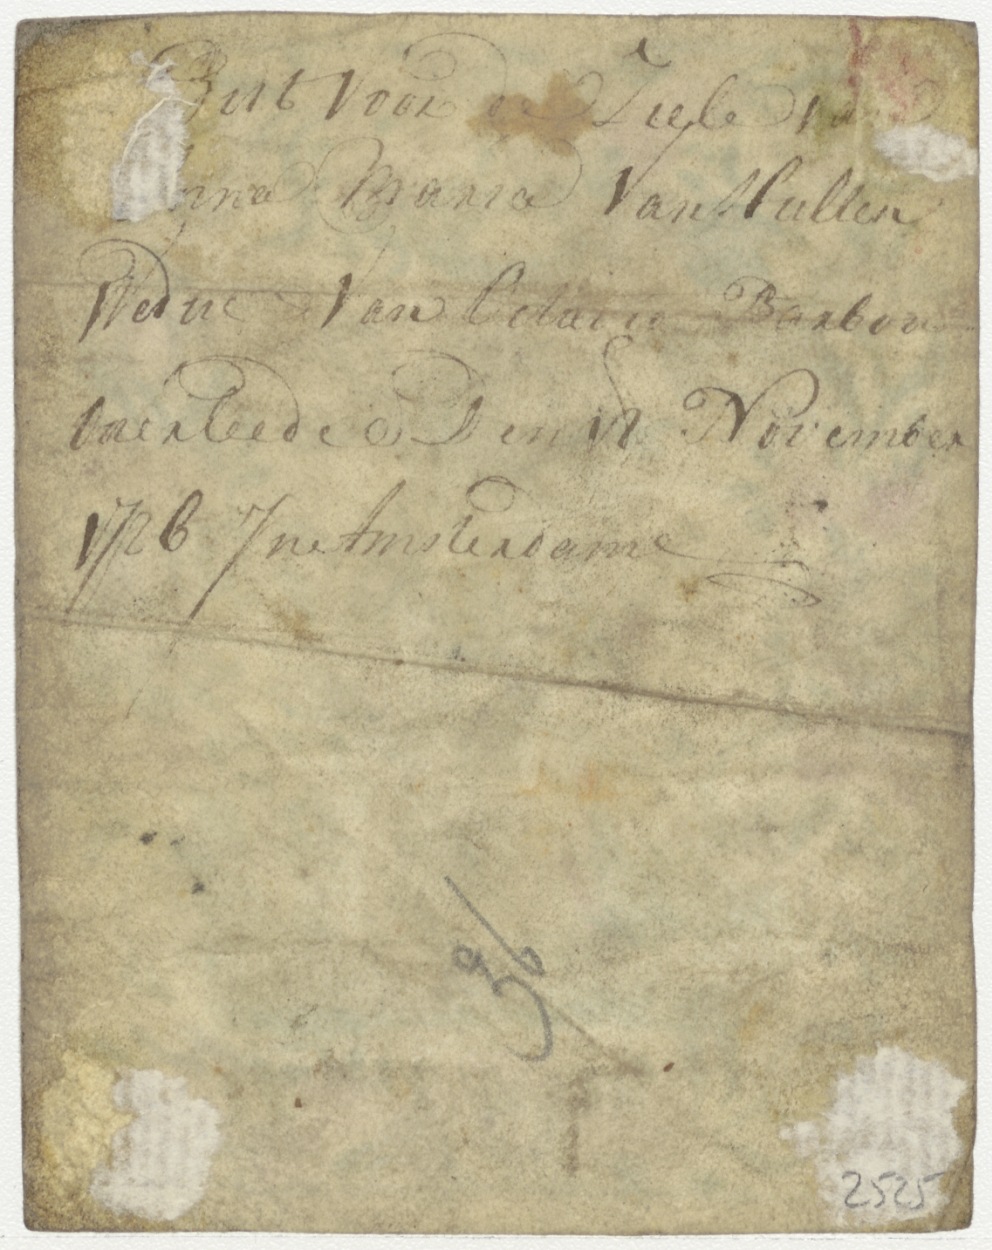 Bidt voor de Ziele van
Anna Maria Van Hullen
Weduc Van Barbou
Overleede Den 18 November
1726 Jn Amsterdame
36
2525